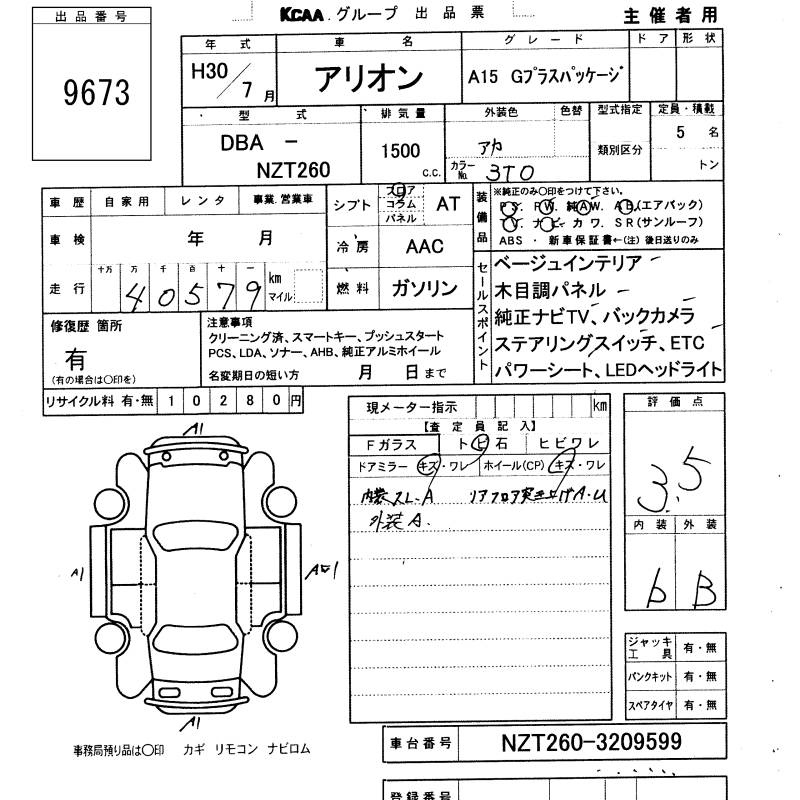 出品番号
9673
KCAA グループ 出品票
主催者用
年式 車名 グレード ドア 形状
H30/7月 アリオン A15 Gプラスパッケージ
型式 排気量 外装色 色替 型式指定 定員・積載
DBA - NZT260
1500 C.C.
アカ
カラーNo. 3T0
類別区分
5 名
トン
車歴 自家用 レンタ 事業.営業車
車検 年 月
走行 十万 万 千 百 十 一 km マイル
40579
シフト フロア コラム パネル AT
冷房 AAC
燃料 ガソリン
装備品
※純正のみ○印をつけて下さい。
P.S. P.W. 純A.W. A.B.(エアバッグ)
T.V. ナビ・カワ. S.R(サンルーフ)
ABS ・ 新車保証書←(注) 後日送りのみ
セールスポイント
ベージュインテリア
木目調パネル
純正ナビTV、バックカメラ
ステアリングスイッチ、ETC
パワーシート、LEDヘッドライト
修復歴 箇所
有
(有の場合は○印を)
注意事項
クリーニング済、スマートキー、プッシュスタート
PCS、LDA、ソナー、AHB、純正アルミホイール
名変期日の短い方 月 日まで
リサイクル料 有・無 10280円
現メーター指示 km
【査定員記入】
Fガラス トビ石 ヒビワレ
ドアミラー キズ・ワレ ホイール(CP) キズ・ワレ
内装スレ.A リアフロア突き上げA.U
外装A.
評価点
3.5
内装 外装
b B
ジャッキ工具 有・無
パンクキット 有・無
スペアタイヤ 有・無
A1
A1
A1
事務局預り品は○印 カギ リモコン ナビロム
車台番号 NZT260-3209599
登録番号